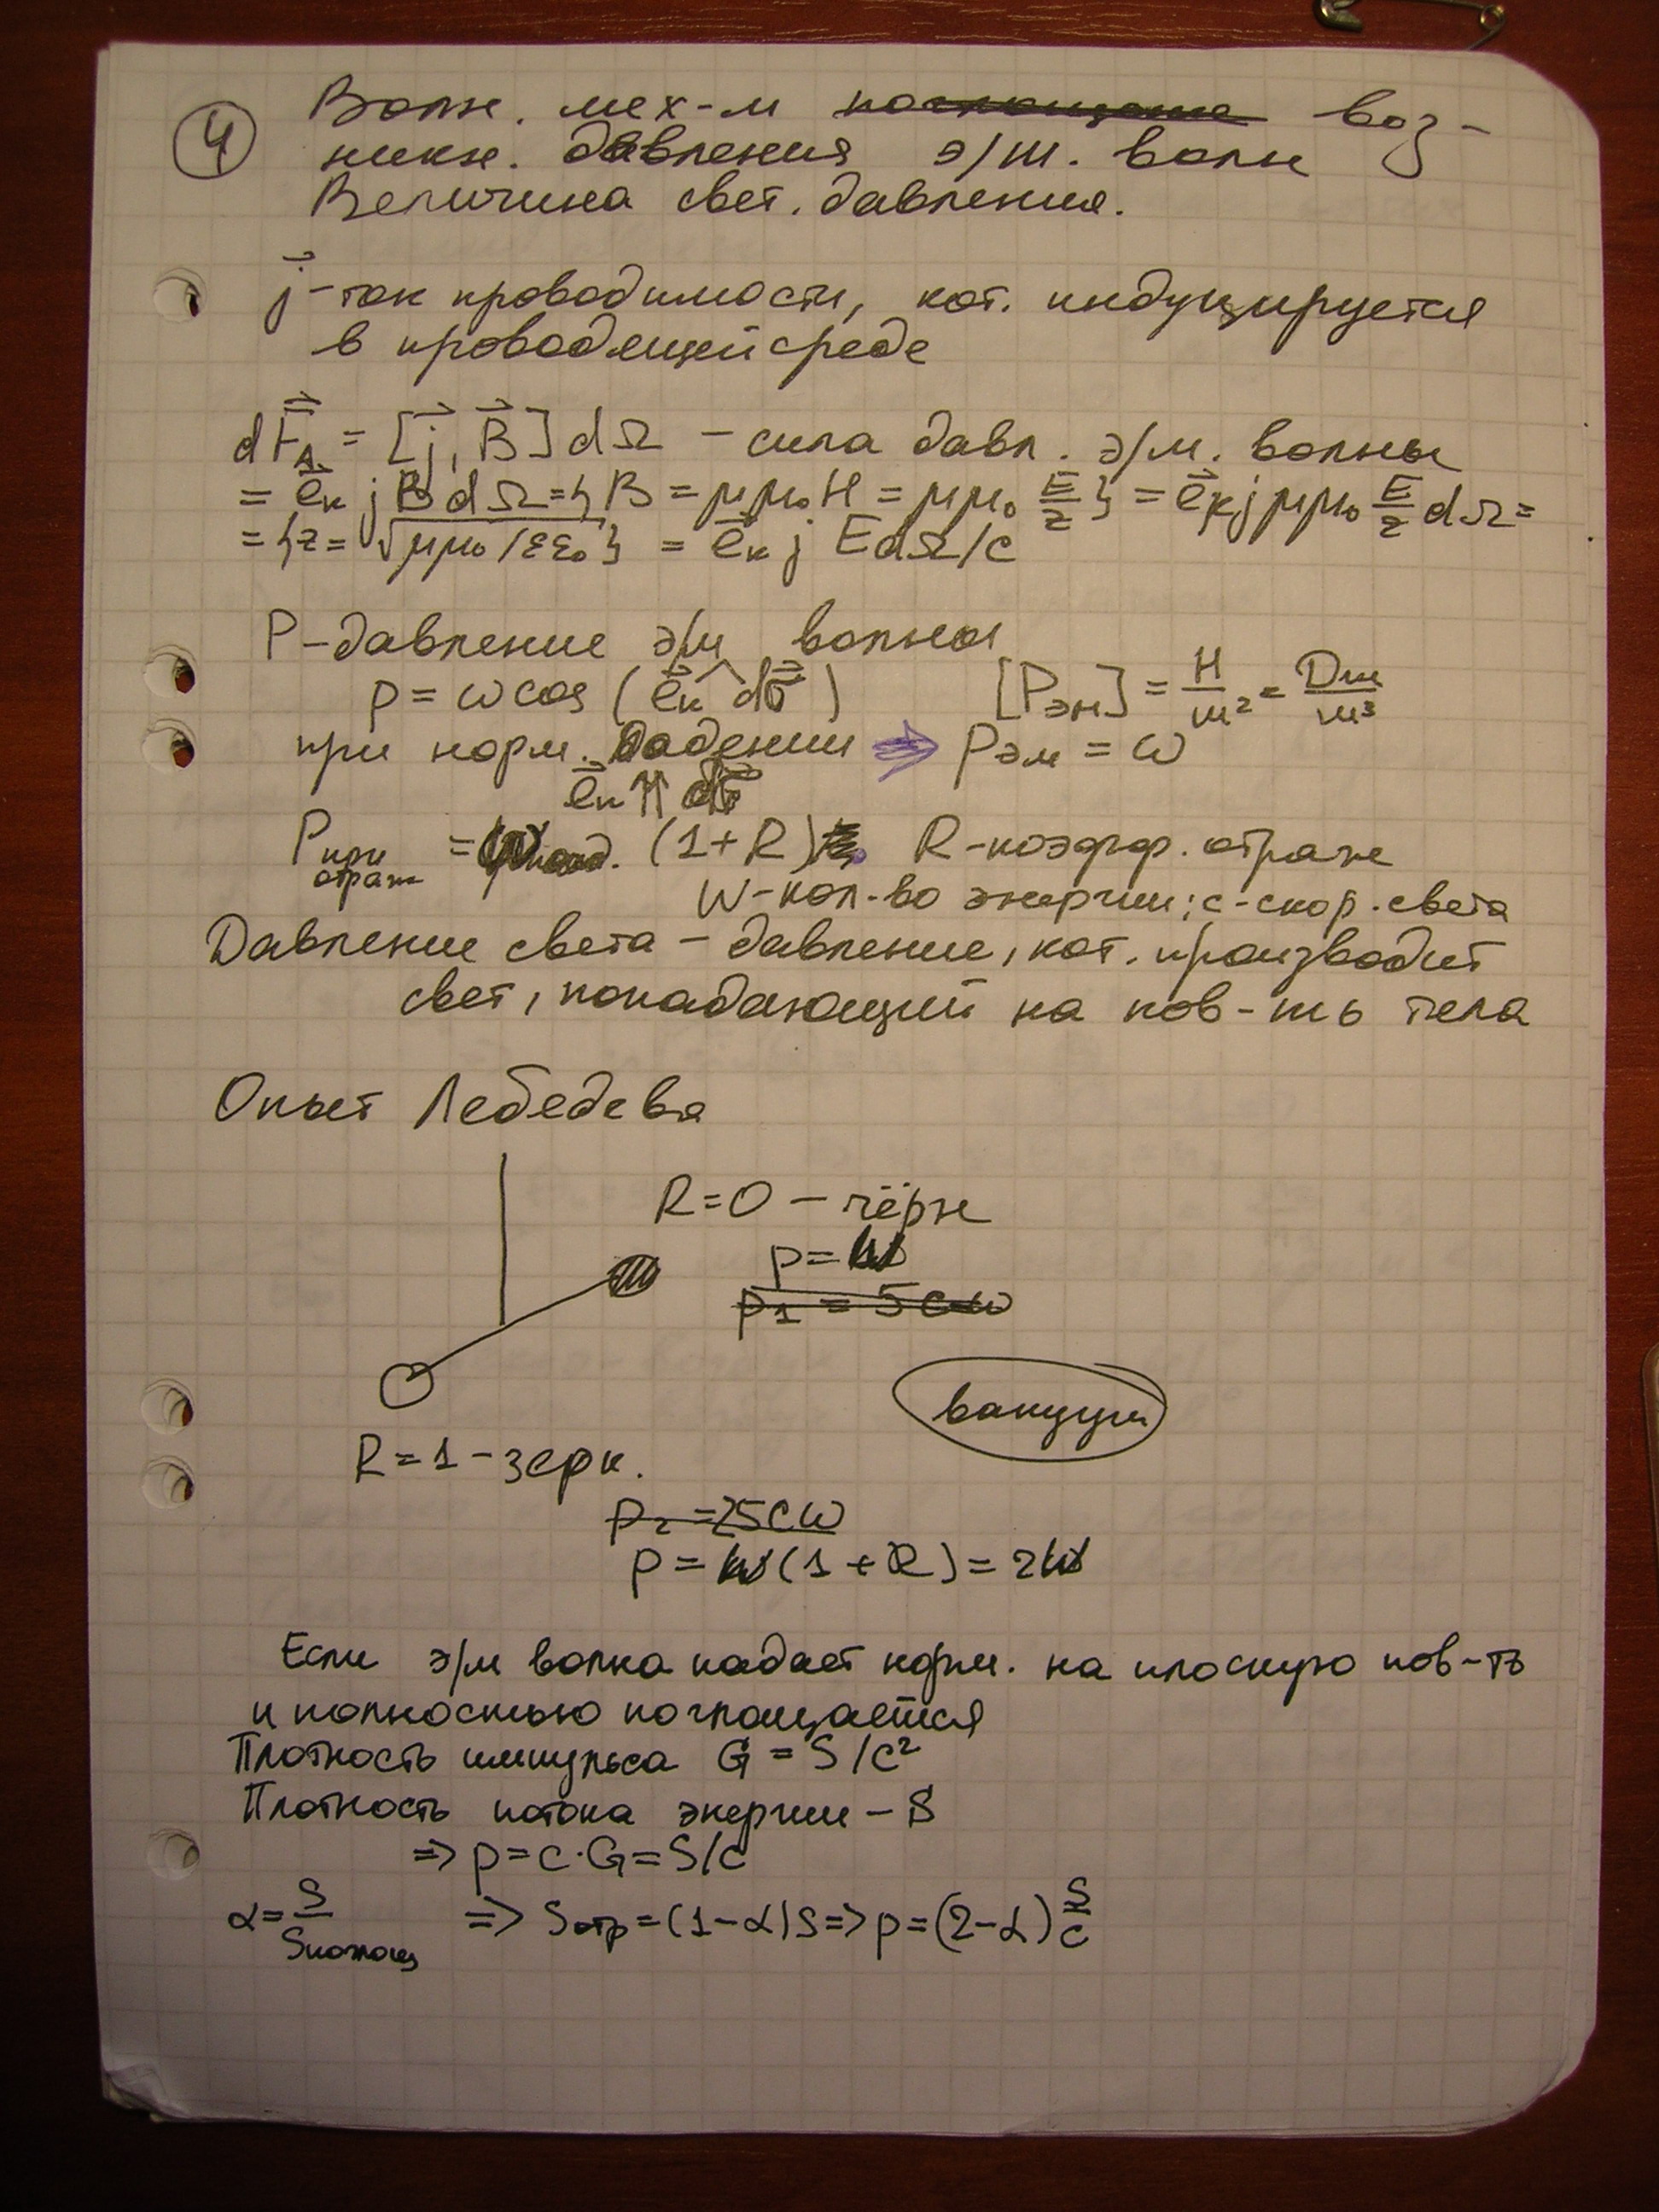 ④ Волн. мех-м поглощение воз-
никн. давления э/м. волн
Величина свет. давления.
j⃗ - ток проводимости, кот. индуцируется
в проводящей среде
dF⃗_A = [j⃗, B⃗]dΩ - сила давл. э/м. волны
= e⃗ₖ j B dΩ = {B = μμ₀H = μμ₀ E/z} = e⃗ₖ j μμ₀ E/z dΩ =
= {z = √(μμ₀/εε₀)} = e⃗ₖ j E dΩ/c
P - давление э/м волны
p = w cos (e⃗ₖ ^ dσ⃗) [Pэм] = Н/м² = Дж/м³
при норм. падении ⇒ Pэм = w
e⃗ₖ ⇈ dσ⃗
Pпри отраж = wпад. (1+R) R - коэфф. отраж
W - кол-во энергии; c - скор. света
Давление света - давление, кот. производит
свет, попадающий на пов-ть тела
Опыт Лебедева
R = 0 - чёрн
p = w
p₁ = Scw
вакуум
R = 1 - зерк.
p₂ = 2Scw
p = w(1 + R) = 2w
Если э/м волна падает норм. на плоскую пов-ть
и полностью поглощается
Плотность импульса G = S/c²
Плотность потока энергии - S
⇒ p = c·G = S/c
α = S/Sпоглощ ⇒ Sотр = (1-α)S ⇒ p = (2-α) S/c